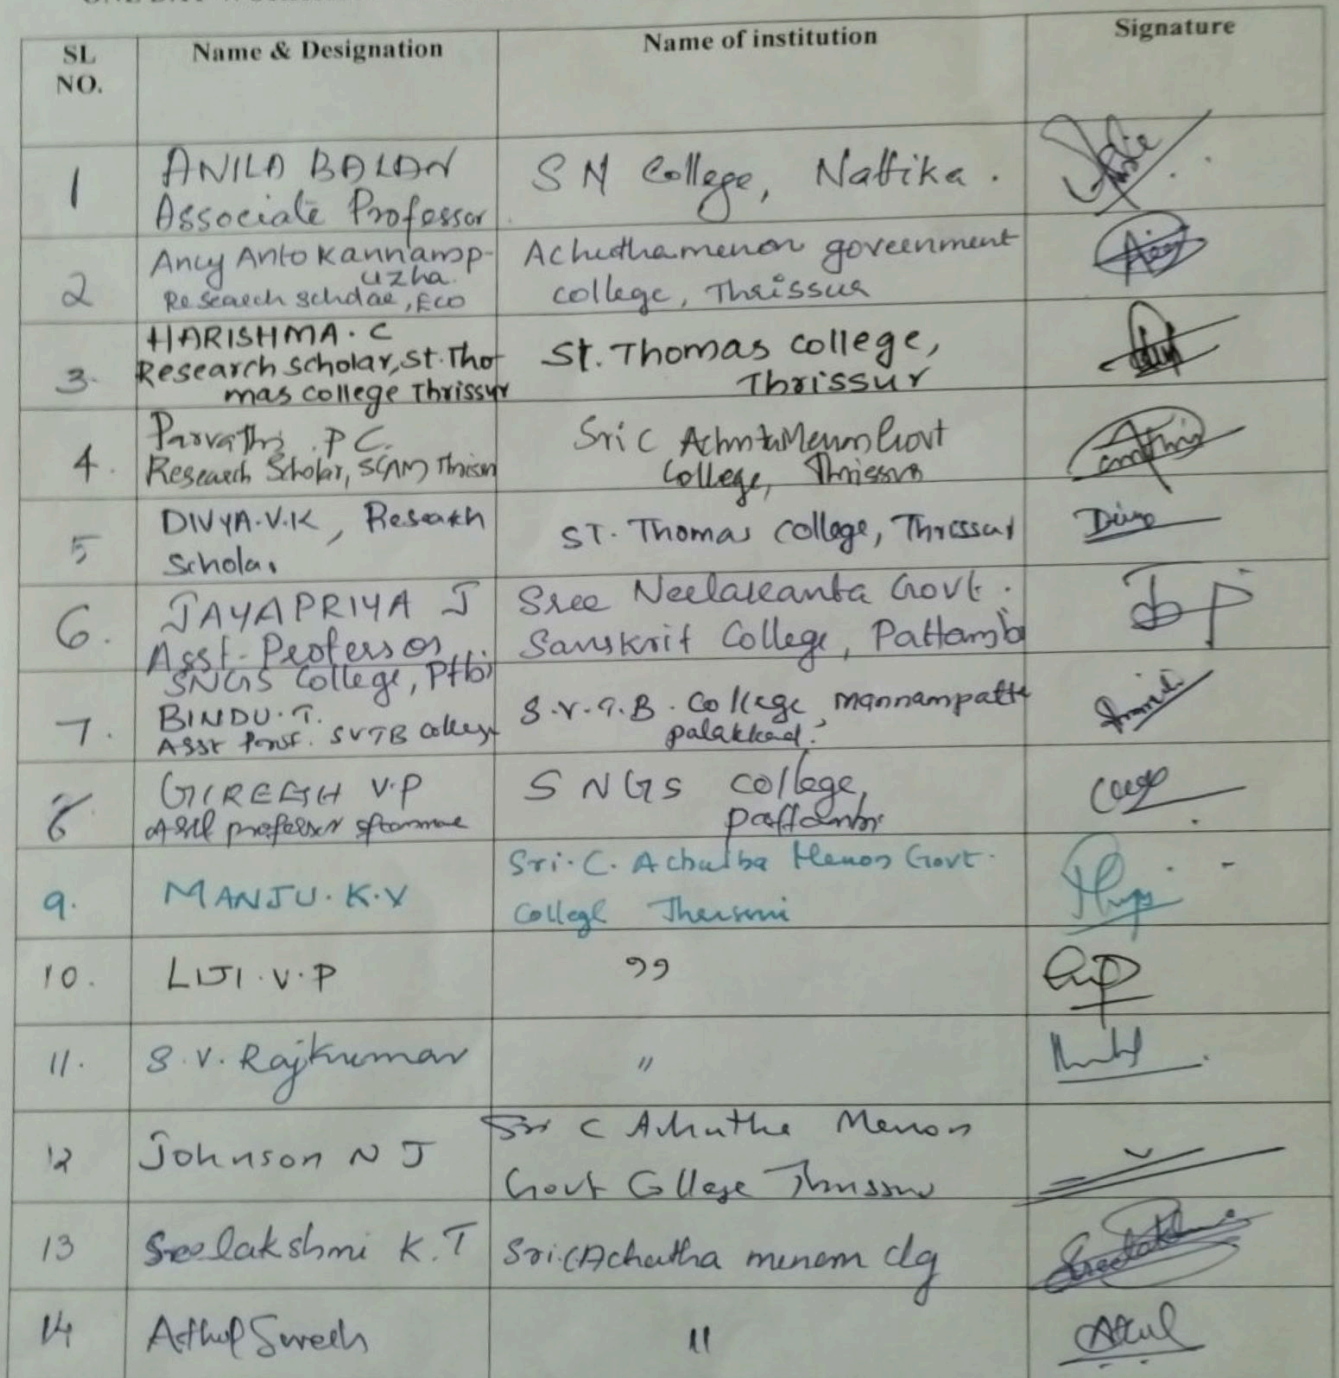 SL NO.
Name & Designation
Name of institution
Signature
1
ANILA BALAN
Associate Professor
S N College, Nattika .
2
Ancy Anto Kannamp-
uzha.
Research scholar, Eco
Achuthamenon government
college, Thrissur
3.
HARISHMA. C
Research scholar, St. Tho
mas college Thrissur
St. Thomas college,
Thrissur
4.
Parvathi .P C.
Research Scholar, SCAM Thrissur
Sri C Achuta Menon Govt
College, Thrissur
5
DIVYA.V.K, Research
Scholar
ST. Thomas College, Thrissur
Divya
6.
JAYAPRIYA J
Asst. Professor
SNGS College, Ptbi
Sree Neelakanta Govt.
Sanskrit College, Pattambi
7.
BINDU.T.
Asst Prof. SVTB College
S.V.T.B. College, mannampatta
palakkad.
8
GIREESH V.P
Asst professor
S N G S college,
pattambi
9.
MANJU.K.V
Sri.C. Achutha Menon Govt.
College Thrissur
10.
LIJI.V.P
"
11.
S.V. Rajkumar
"
12
Johnson N J
Sri C Achutha Menon
Govt College Thrissur
13
Sreelakshmi K.T
Sri.C Achutha menom clg
Sreelakshmi
14
Athul Suresh
"
Athul